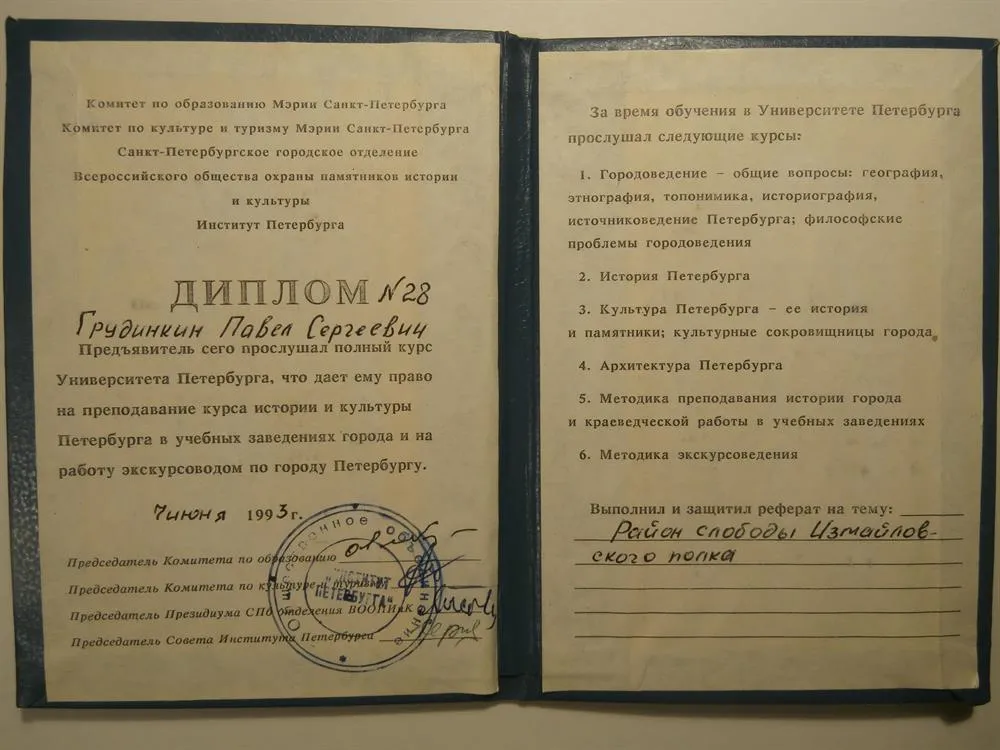 Комитет по образованию Мэрии Санкт-Петербурга
Комитет по культуре и туризму Мэрии Санкт-Петербурга
Санкт-Петербургское городское отделение
Всероссийского общества охраны памятников истории
и культуры
Институт Петербурга
ДИПЛОМ №28
Грудинкин Павел Сергеевич
Предъявитель сего прослушал полный курс
Университета Петербурга, что дает ему право
на преподавание курса истории и культуры
Петербурга в учебных заведениях города и на
работу экскурсоводом по городу Петербургу.
7 июня 1993 г.
Председатель Комитета по образованию
Председатель Комитета по культуре и туризму
Председатель Президиума СПб отделения ВООПИиК
Председатель Совета Института Петербурга
Общегородское объединение
"ИНСТИТУТ
ПЕТЕРБУРГА"
За время обучения в Университете Петербурга
прослушал следующие курсы:
1. Городоведение – общие вопросы: география,
этнография, топонимика, историография,
источниковедение Петербурга; философские
проблемы городоведения
2. История Петербурга
3. Культура Петербурга – ее история
и памятники; культурные сокровищницы города
4. Архитектура Петербурга
5. Методика преподавания истории города
и краеведческой работы в учебных заведениях
6. Методика экскурсоведения
Выполнил и защитил реферат на тему:
Район слободы Измайлов-
ского полка